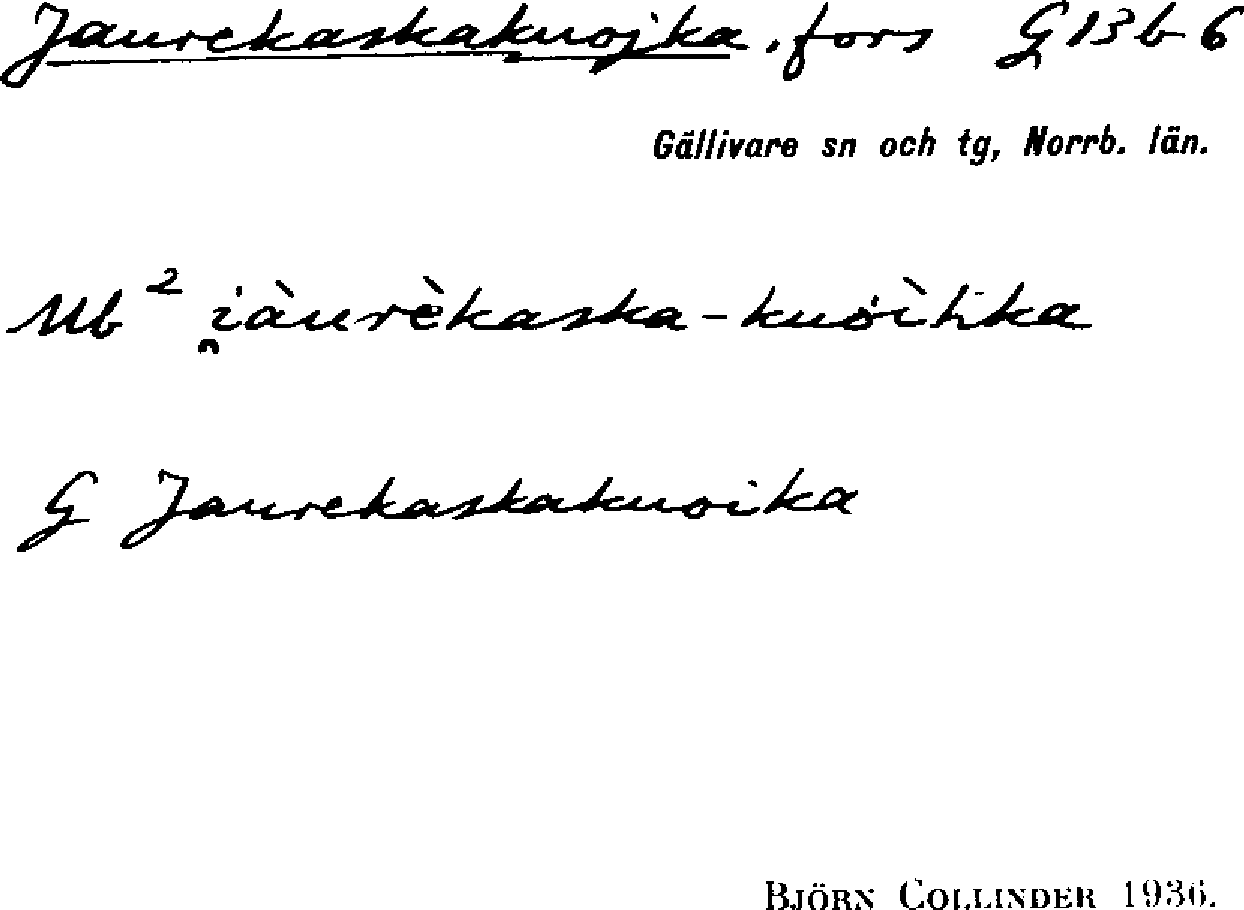 Jaurekaskakuojka, fors G 13 b 6
Gällivare sn och tg, Norrb. län.
Ub² i̯àurèkaska-kuȯ̀ìhka
G Jaurekaskakuoika
BJÖRN COLLINDER 1936.